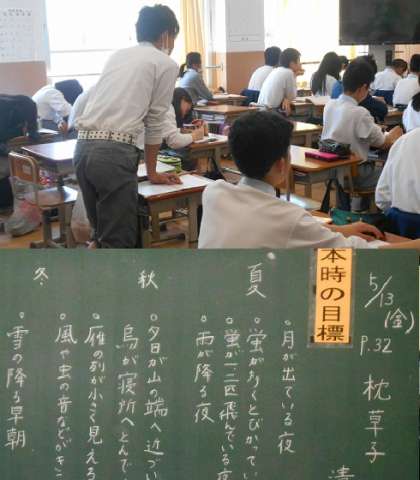 5/13
(金)
P.32
枕草子
清
本時の目標
夏
月が出ている夜
蛍が多くとびかってい
蛍が一二匹飛んでいる夜
雨が降る夜
秋
夕日が山の端へ近づい
烏が寝所へとんでい
雁の列が小さく見える
風や虫の音などがきこ
冬
雪の降る早朝